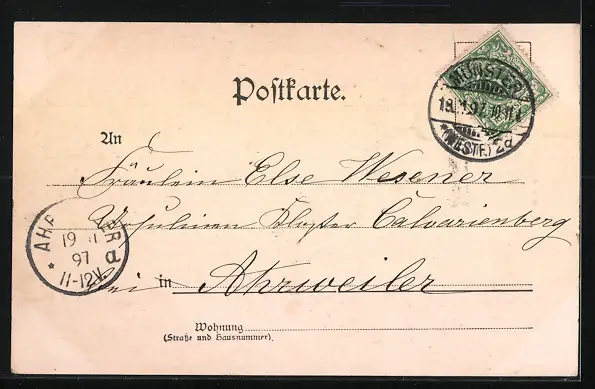 Postkarte.
MÜNSTER
18. 97. 10-11V
*(WESTF.) 2d
An
Fräulein Else Wesener
Ursulinen Kloster Calvarienberg
AHR ER
19 97
11-12V.
bei in Ahrweiler
Wohnung
(Straße und Hausnummer).